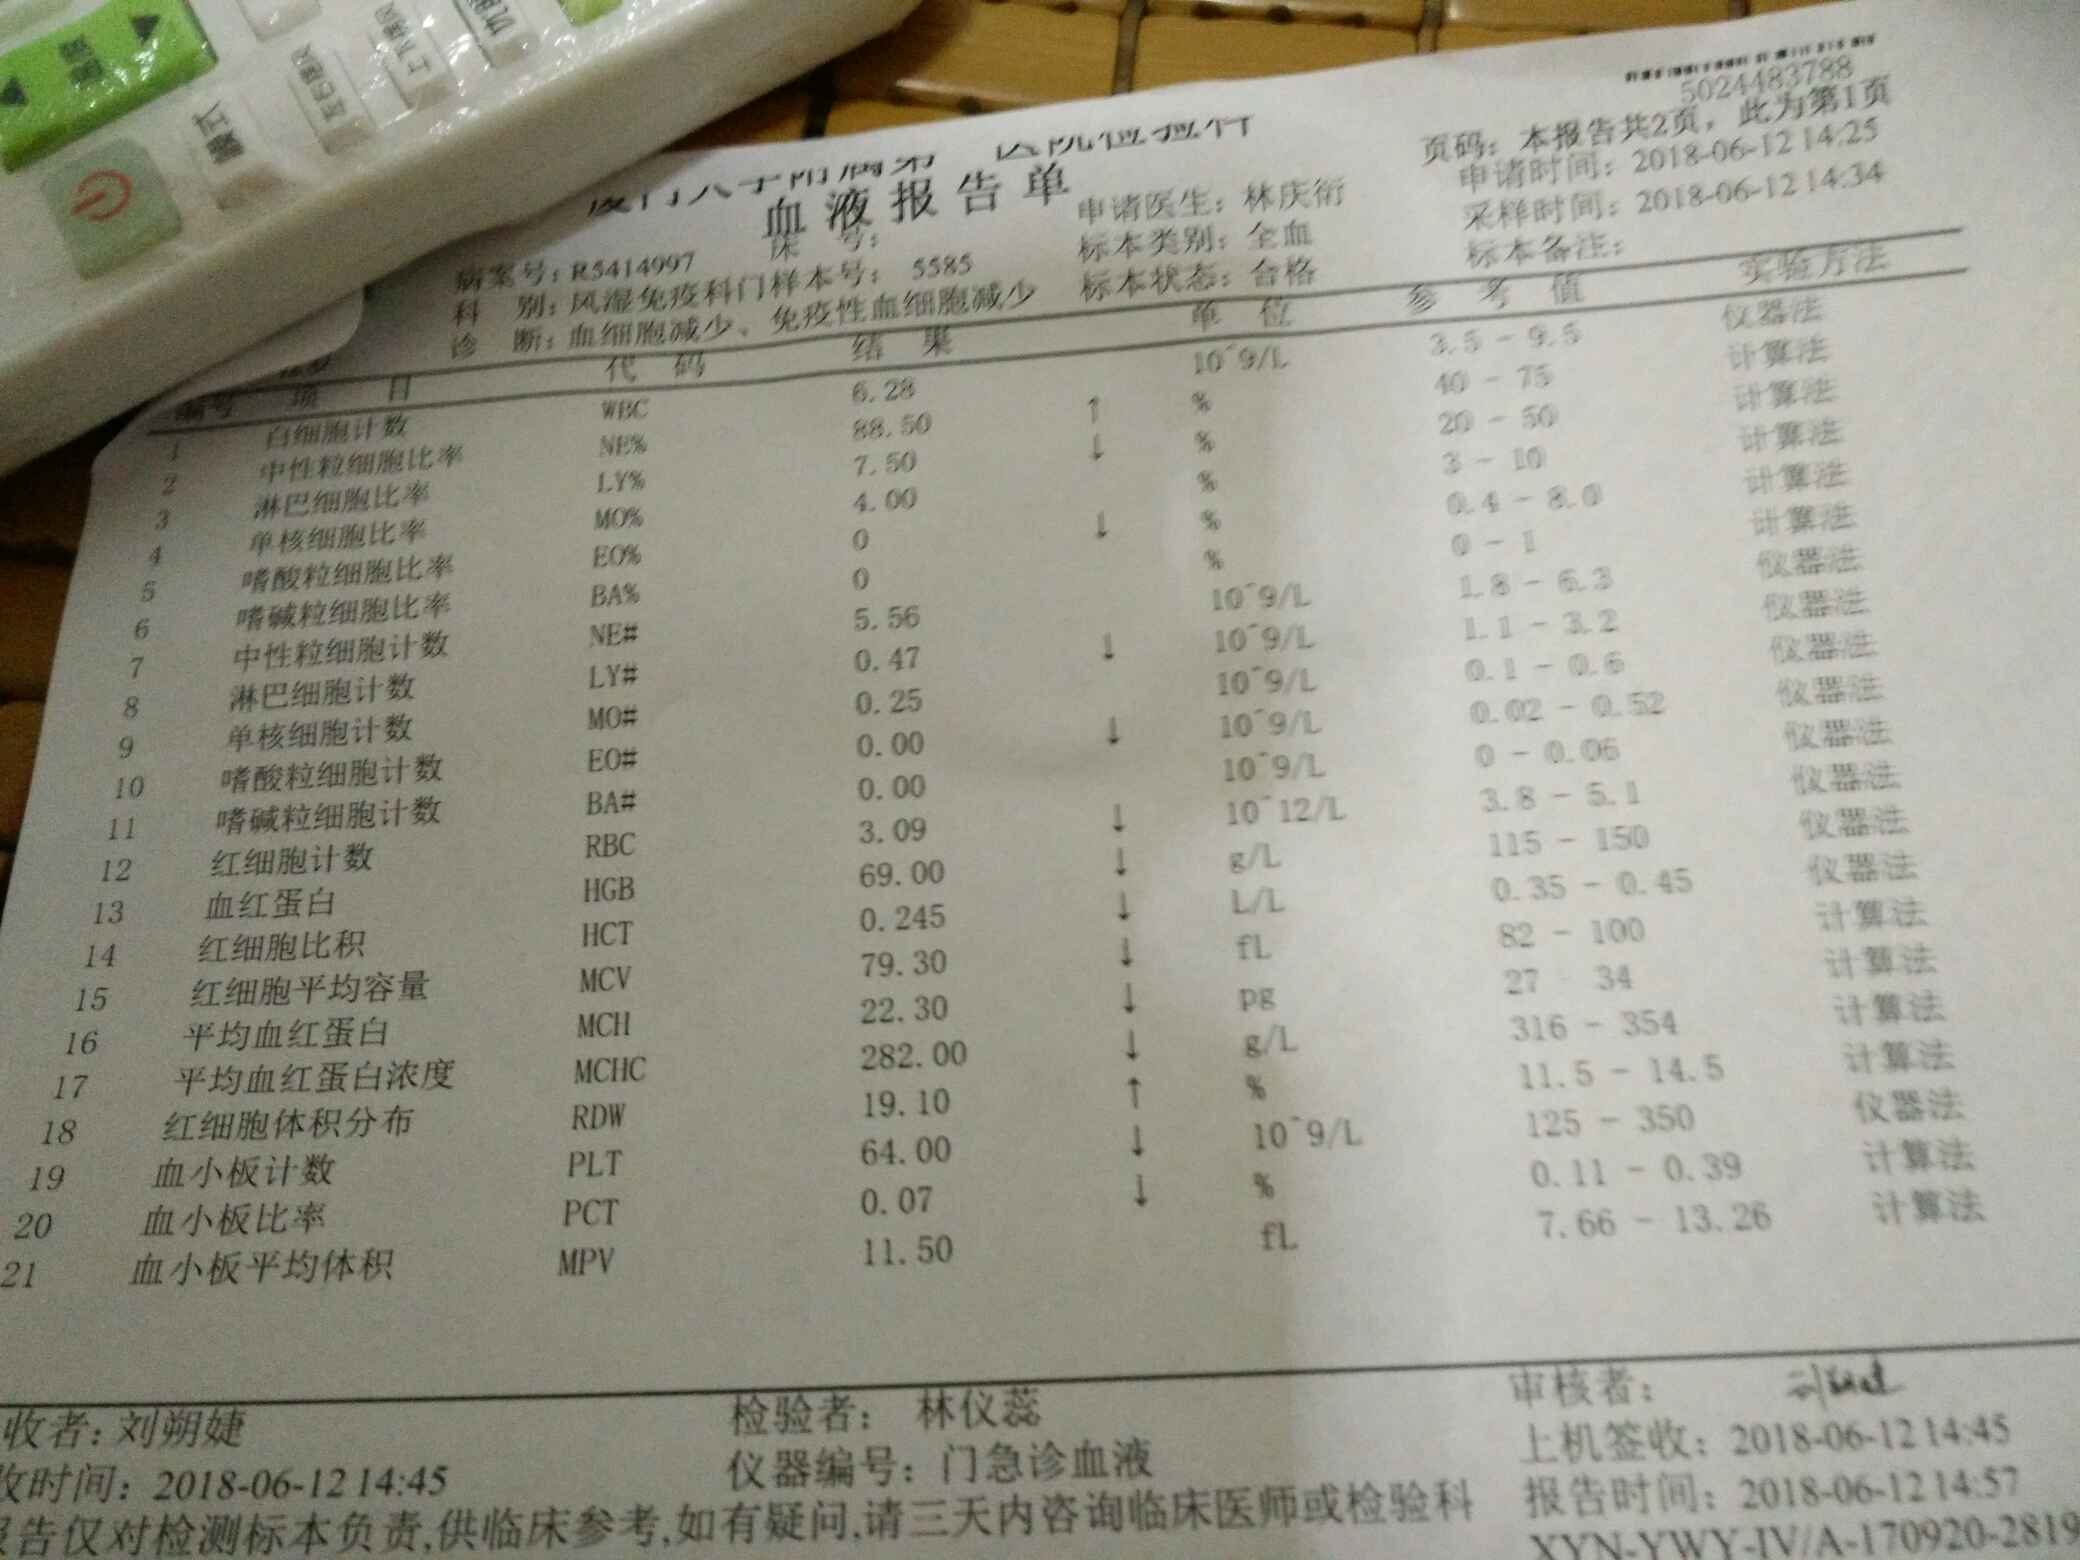 温度
模式
左右摆风
上下摆风
功能
5024483788
页码：本报告共2页，此为第1页
血液报告单
申请医生：林庆衍
申请时间：2018-06-12 14:25
病案号：R5414997
床 号：
标本类别：全血
采样时间：2018-06-12 14:34
科 别：风湿免疫科门 样本号： 5585
标本状态：合格
标本备注：
诊 断：血细胞减少、免疫性血细胞减少
编号 项 目 代 码 结 果 单 位 参 考 值 实验方法
1 白细胞计数 WBC 6.28 10^9/L 3.5 - 9.5 仪器法
2 中性粒细胞比率 NE% 88.50 ↑ % 40 - 75 计算法
3 淋巴细胞比率 LY% 7.50 ↓ % 20 - 50 计算法
4 单核细胞比率 MO% 4.00 % 3 - 10 计算法
5 嗜酸粒细胞比率 EO% 0 ↓ % 0.4 - 8.0 计算法
6 嗜碱粒细胞比率 BA% 0 % 0 - 1 计算法
7 中性粒细胞计数 NE# 5.56 10^9/L 1.8 - 6.3 仪器法
8 淋巴细胞计数 LY# 0.47 ↓ 10^9/L 1.1 - 3.2 仪器法
9 单核细胞计数 MO# 0.25 10^9/L 0.1 - 0.6 仪器法
10 嗜酸粒细胞计数 EO# 0.00 ↓ 10^9/L 0.02 - 0.52 仪器法
11 嗜碱粒细胞计数 BA# 0.00 10^9/L 0 - 0.06 仪器法
12 红细胞计数 RBC 3.09 ↓ 10^12/L 3.8 - 5.1 仪器法
13 血红蛋白 HGB 69.00 ↓ g/L 115 - 150 仪器法
14 红细胞比积 HCT 0.245 ↓ L/L 0.35 - 0.45 仪器法
15 红细胞平均容量 MCV 79.30 ↓ fL 82 - 100 计算法
16 平均血红蛋白 MCH 22.30 ↓ pg 27 - 34 计算法
17 平均血红蛋白浓度 MCHC 282.00 ↓ g/L 316 - 354 计算法
18 红细胞体积分布 RDW 19.10 ↑ % 11.5 - 14.5 计算法
19 血小板计数 PLT 64.00 ↓ 10^9/L 125 - 350 仪器法
20 血小板比率 PCT 0.07 ↓ % 0.11 - 0.39 计算法
21 血小板平均体积 MPV 11.50 fL 7.66 - 13.26 计算法
收者：刘朔婕
检验者： 林仪蕊
审核者：
收时间：2018-06-12 14:45
仪器编号：门急诊血液
上机签收：2018-06-12 14:45
报告仅对检测标本负责,供临床参考,如有疑问,请三天内咨询临床医师或检验科
报告时间：2018-06-12 14:57
XYN-YWY-IV/A-170920-2819